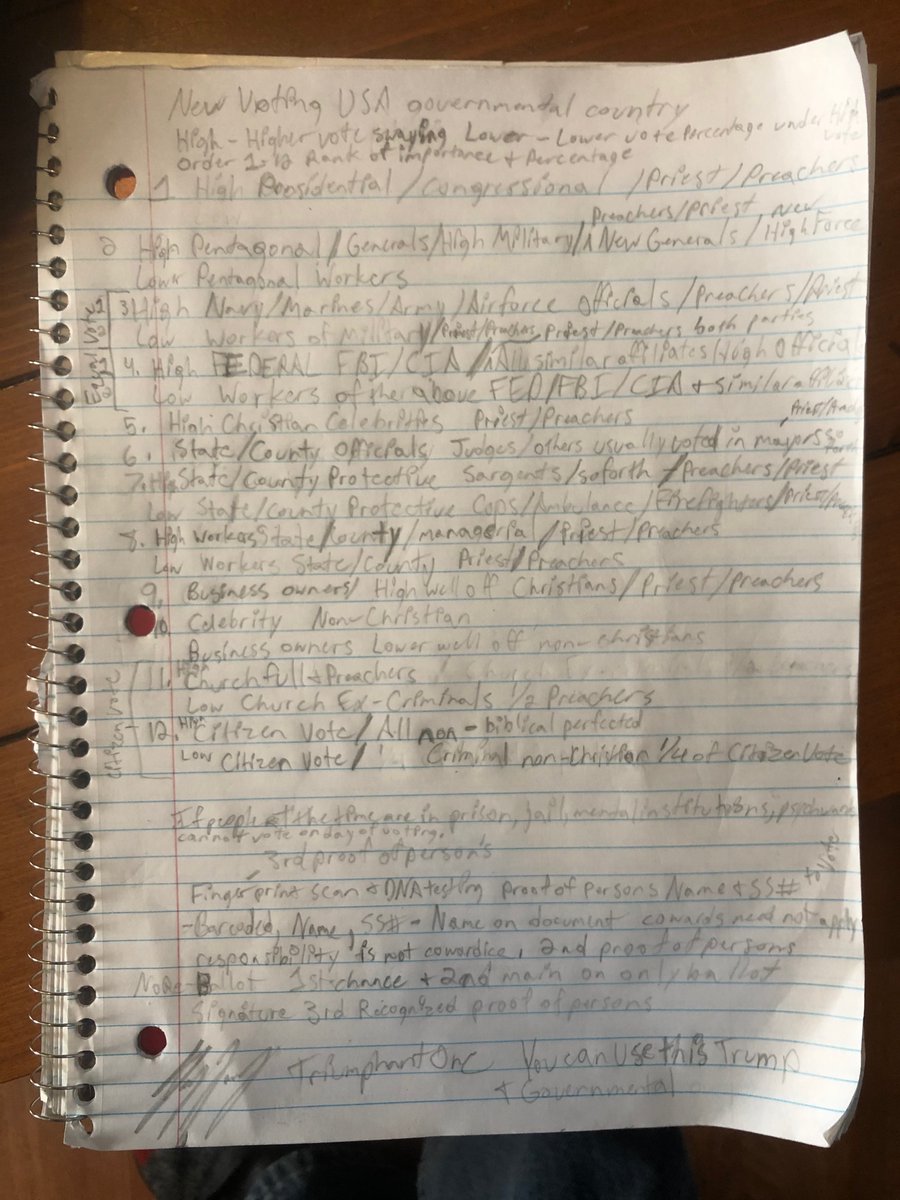 New Voting USA governmental country
High - Higher vote swaying Lower - Lower vote Percentage under High vote
Order 1-12 Rank of importance + Percentage
1 High Presidential / Congressional / Priest / Preachers
Preachers/Priest, New
2 High Pentagonal / Generals / High Military / ∧ New Generals / High Force
Lower Pentagonal Workers
3 High Navy / Marines / Army / Airforce Officials / Preachers / Priest
Low Workers of Military / Priest/Preachers Priest/Preachers both parties
Equal Vote
4. High FEDERAL FBI / CIA / All similar affiliates / High Official
Low Workers of the above FED / FBI / CIA + similar
5. High Christian Celebrities Priest / Preachers
6. State / County Officials Judges / others usually voted in mayors so forth
7. State / County Protective Sargents / soforth / Preachers / Priest
Low State / County Protective Cops / Ambulance / Firefighters / Priest /
8. High Workers State / County / managerial / Priest / Preachers
Low Workers State / County Priest / Preachers
9. Business owners / High well off Christians / Priest / Preachers
10. Celebrity Non-Christian
Business owners Lower well off non-christians
citizen vote
11. High Church full + Preachers
Low Church Ex-Criminals 1/2 Preachers
12. High Citizen Vote / All non - biblical perfected
Low Citizen Vote / Criminal non-Christian 1/4 of Citizen Vote
If people at the time are in prison, jail, mental institutions,
cannot vote on day of voting.
3rd proof of person's
Finger print scan + DNA testing proof of persons Name + SS# to vote
- Barcoded, Name, SS# - Name on document cowards need not apply
responsibility is not cowardice, 2nd proof of persons
Note - Ballot 1st chance + 2nd main on only ballot
Signature 3rd Recognized proof of persons
Triumphant One You can Use this Trump
+ Governmental